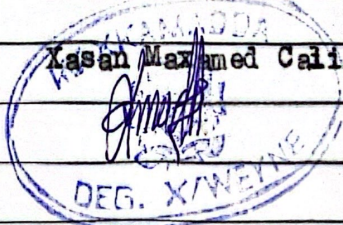 Xasan Maxamed Cali
DEG. X/WEYNE